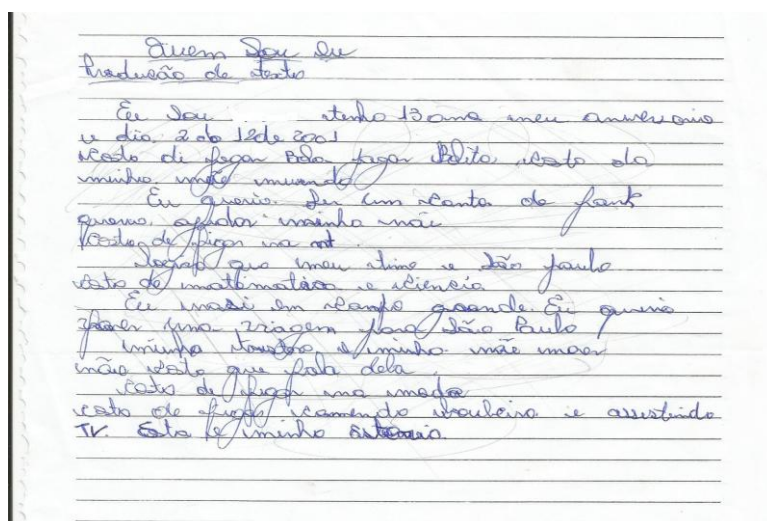 Quem Sou Eu
Produção de texto
Eu Sou tenho 13 ano meu aniversario
e dia 2 do 12 de 2001
Gosto di jogar Bola jogar Gosto da
minha mãe
Eu queria Ser um Canto de Fank
queria ajudar minha mãe
Gosto de ficar na
que meu time e São Paulo
Gosto de matematica e ciencia
Eu nasi em Campo grande. Eu queria
fazer uma viagem para São Paulo
minha e minha mãe
não gosto que fala dela
Gosto de ficar na
Gosto de ficar comendo e assistindo
TV. Esta e minha